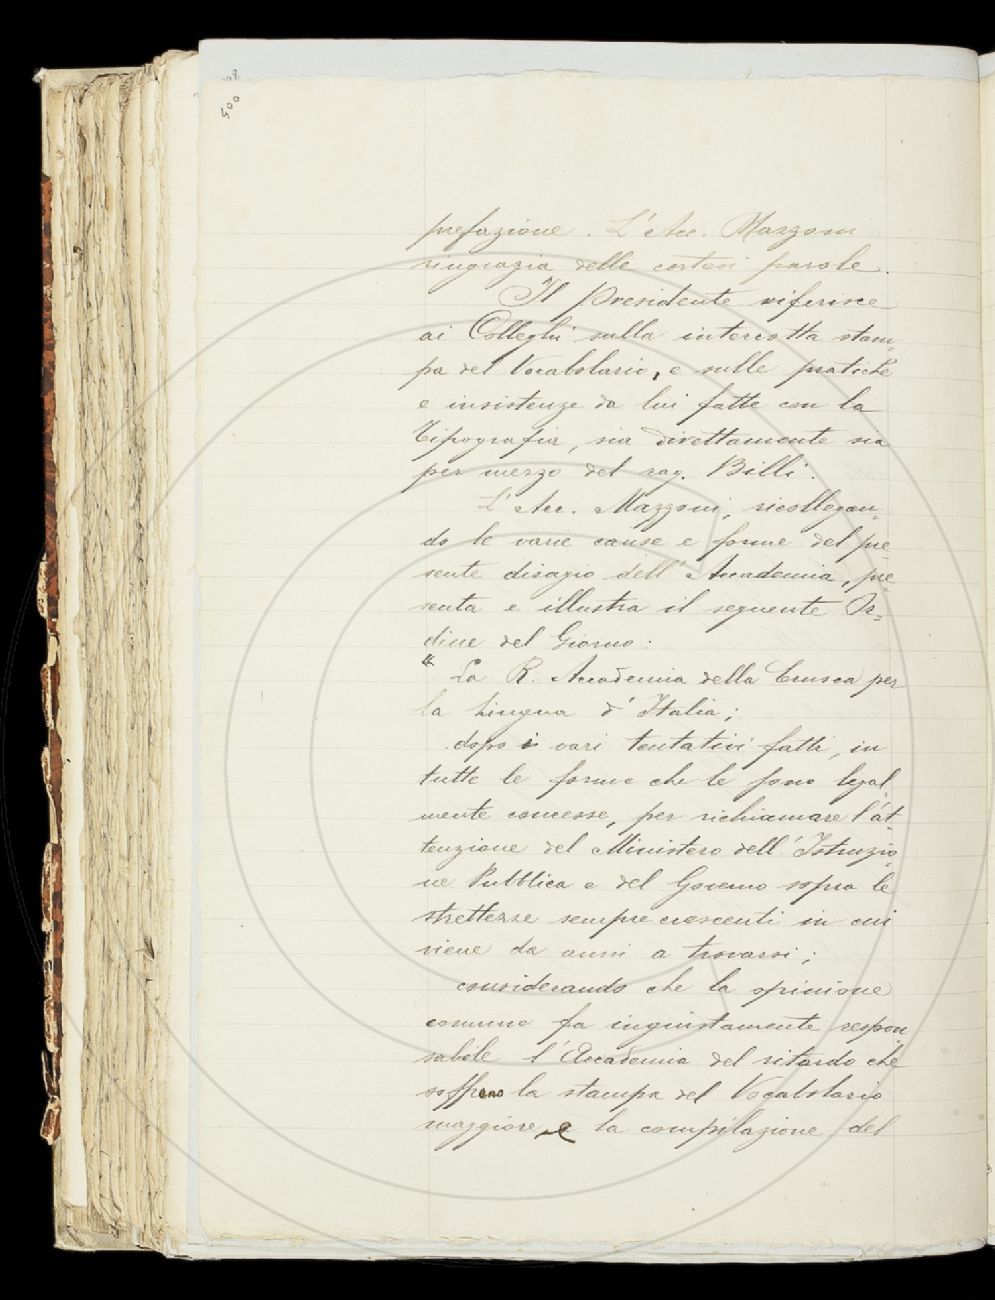 500
prefazione. L'Acc. Mazzoni
ringrazia delle cortesi parole.
Il Presidente riferisce
ai Colleghi sulla interrotta stam=
pa del Vocabolario, e sulle pratiche
e insistenze da lui fatte con la
Tipografia, sia direttamente sia
per mezzo del rag. Billi.
L'Acc. Mazzoni, ricollegan=
do le varie cause e forme del pre=
sente disagio dell'Accademia, pre=
senta e illustra il seguente Or=
dine del Giorno:
" La R. Accademia della Crusca per
la Lingua d'Italia;
dopo i vari tentativi fatti, in
tutte le forme che le sono legal=
mente concesse, per richiamare l'at=
tenzione del Ministero dell'Istruzio=
ne Pubblica e del Governo sopra le
strettezze sempre crescenti in cui
viene da anni a trovarsi;
considerando che la opinione
comune fa ingiustamente respon=
sabile l'Accademia del ritardo che
soffrono la stampa del Vocabolario
maggiore e la compilazione del